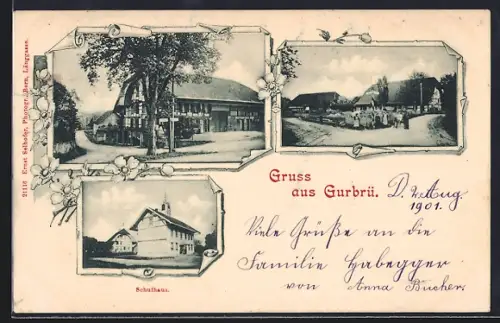 21116 Ernst Selhofer, Photogr., Bern, Länggasse.
Gruss
aus Gurbrü.
Aug.
1901.
Viele Grüße an die
Familie Habegger
von Anna Bücher.
Schulhaus.